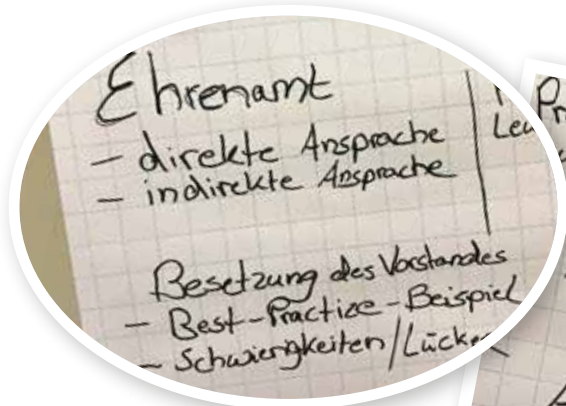 Ehrenamt
- direkte Ansprache
- indirekte Ansprache
Besetzung des Vorstandes
- Best-Practice-Beispiel
- Schwierigkeiten/Lücken